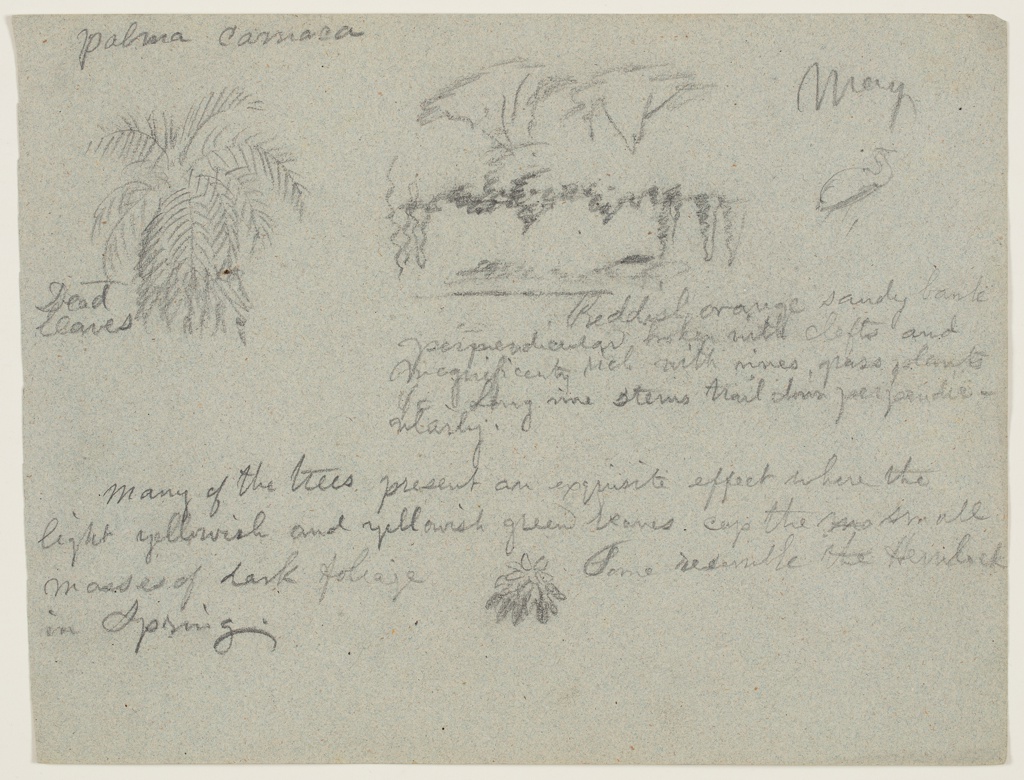 palma camaca
May
Dead
leaves
Reddish orange sandy bank
perpendicular, broken with clefts and
magnificently rich with vines, grass, plants
&c. Long vine stems trail down perpendic-
ularly.
Many of the trees present an exquisite effect where the
light yellowish and yellowish green leaves cap the small
masses of dark foliage
Some resemble the Hemlock
in Spring.